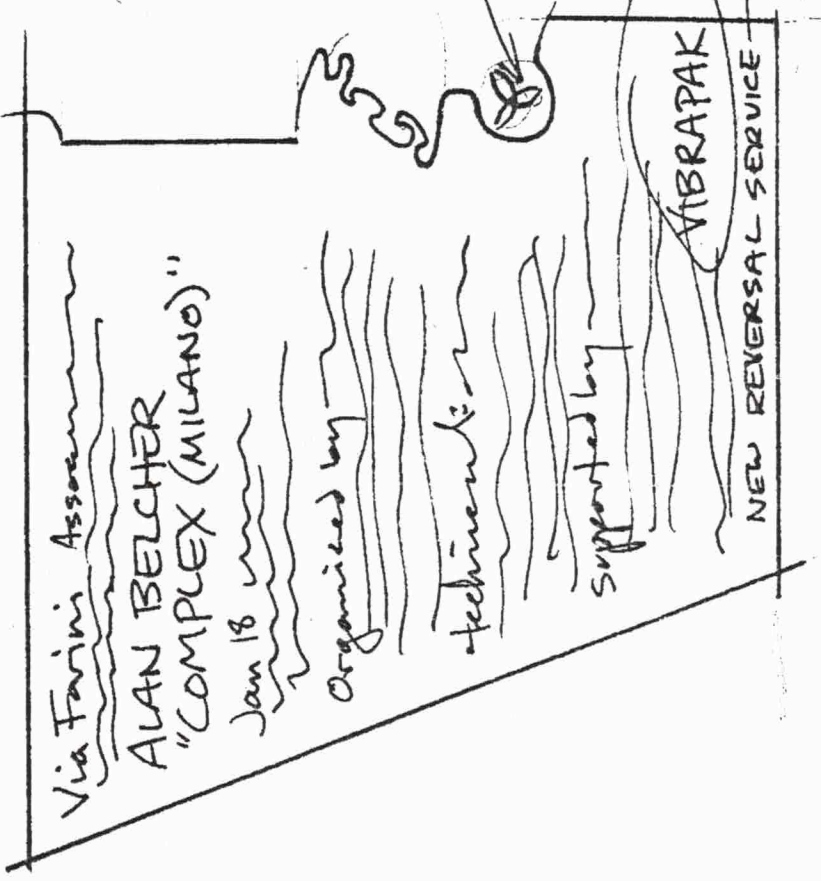 Via Farini
ALAN BELCHER
"COMPLEX (MILANO)"
Jan 18
Organized by
technical:
Supported by
VIBRAPAK
NEW REVERSAL SERVICE